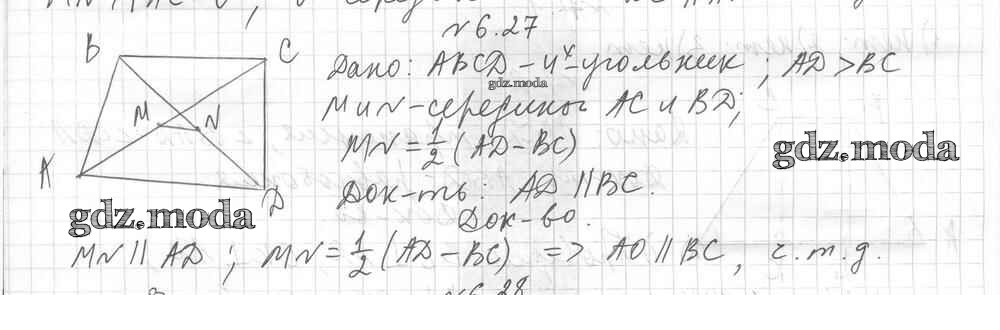 № 6.27
B C
Дано: ABCD - 4х-угольник; AD > BC
gdz.moda
M N
M и N - середины AC и BD;
MN = 1/2 (AD - BC)
gdz.moda
A
Док-ть: AD || BC.
D
gdz.moda
Док-во.
MN || AD; MN = 1/2 (AD - BC) => AD || BC, ч.т.д.
№ 6.28